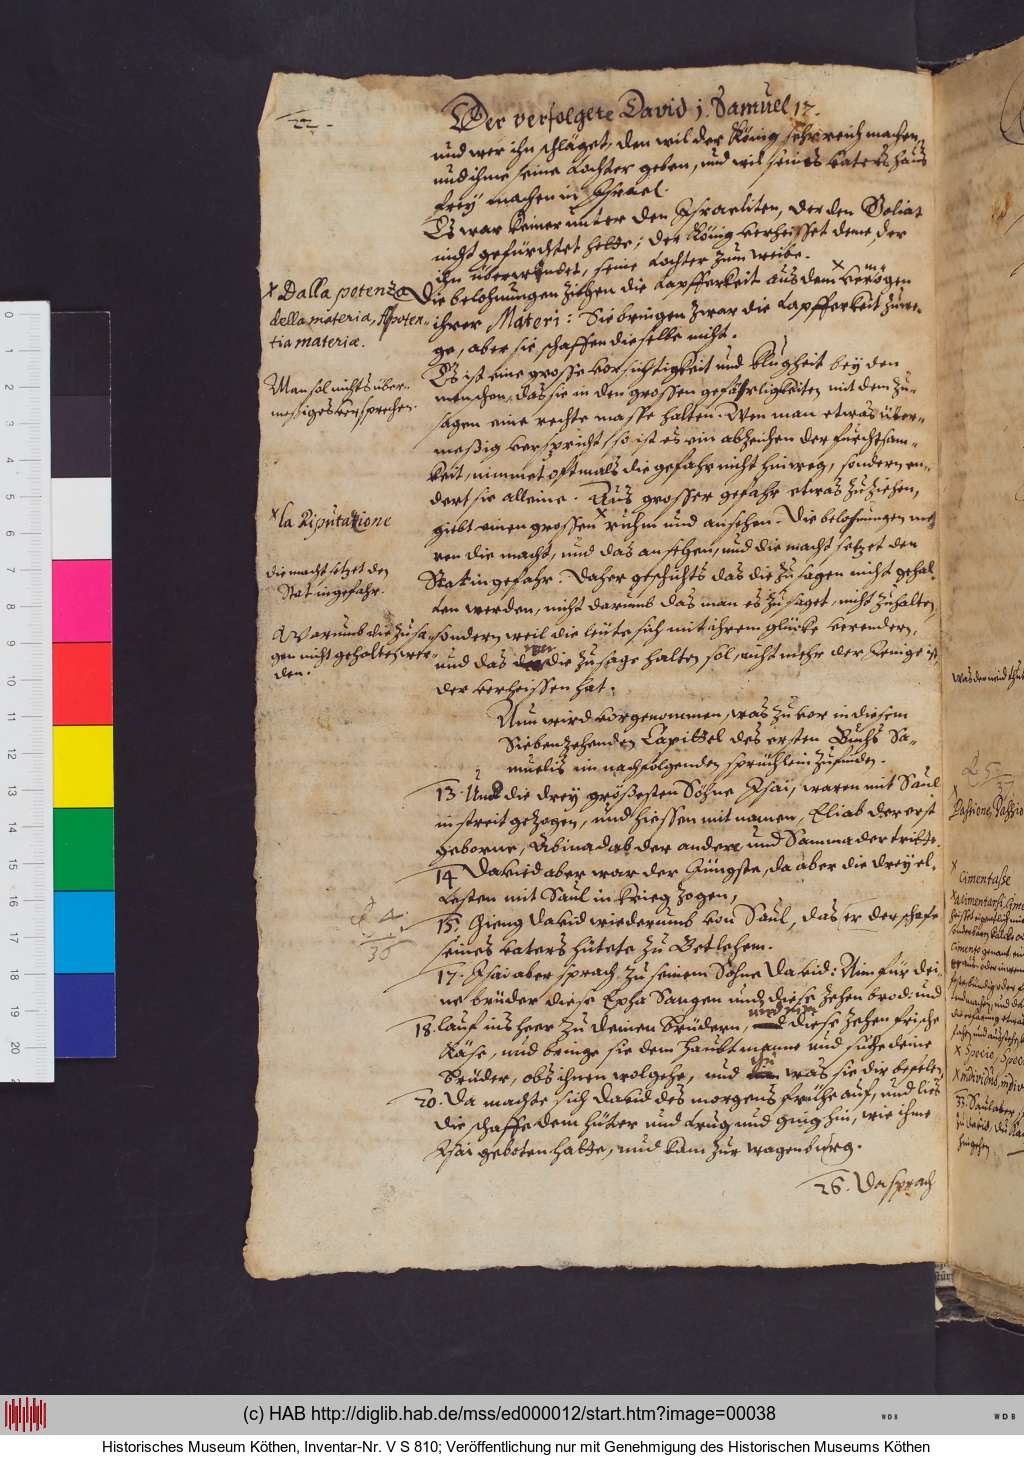 22.
Der verfolgete David 1. Samuel 17.
und wer ihn schläget, den wil der König sehr reich machen,
und ihme seine tochter geben, und wil seines vaters haus
frey machen in Israel.
Es war keiner unter den Israeliten, der den Goliat
nicht gefürchtet hette; der König verheisset deme, der
ihn überwindet, seine tochter zum weibe.
x Dalla potenza
della materia, A poten-
tia materiæ.
Die belohnungen ziehen die tapfferkeit aus dem x vermögen
ihrer Materi: Sie bringen zwar die tapfferkeit zuwe-
ge, aber sie schaffen dieselbe nicht.
Man sol nichts über-
mesziges versprechen.
Es ist eine grosse vorsichtigkeit und klugheit bey den
menschen, das sie in den grossen gefährligkeiten mit dem zu-
sagen eine rechte masse halten. Wen man etwas über-
meszig verspricht, so ist es ein abzeichen der furchtsam-
keit, nimmet oftmals die gefahr nicht hinweg, sondern en-
dert sie alleine. Aus grosser gefahr etwas zuziehen,
x la Riputazione
giebt einen grossen x ruhm und ansehen. Die belohnungen meh-
ren die macht, und das ansehen, und die macht setzet den
die macht setzet den
Stat in gefahr.
Stat in gefahr. Daher geschichts das die zusagen nicht gehal-
ten werden, nicht darumb das man es zusaget, nicht zuhalten,
Warumb die zusa-
gen nicht gehalten wer-
den.
sondern weil die leute sich mit ihrem glücke verendern,
und das der die zusage halten sol, nicht mehr der Jenige ist,
der verheissen hat.
Nun wird vorgenommen, was zuvor in diesem
Siebenzehenden Capittel des ersten Buchs Sa-
muelis im nachfolgenden sprüchlein zufinden.
13. Und die drey grösesten Söhne Isai, waren mit Saul
in streit gezogen, und hiessen mit namen, Eliab der erst
geborne, Abinadab der andere und Samma der dritte.
14. David aber war der Jüngste, da aber die drey el-
testen mit Saul in krieg zogen,
15. Gieng David wiederumb von Saul, das er der schafe
seines vaters hütete zu Betlehem.
17. Isai aber sprach zu seinem Sohne David: Nim für dei-
ne brüder diese Epha Sangen und diese zehen brod und
18. lauf ins heer zu deinen Brüdern, und diese zehen frische
Käse, und bringe sie dem Haubtmanne und suche deine
Brüder, obs ihnen wolgehe, und was sie dir befelen,
20. Da machte sich David des morgens frühe auf, und lies
die schaffe dem hüter und trug und ging hin, wie ihme
Isai geboten hatte, und kam zur wagenburg.
26. Da sprach
(c) HAB http://diglib.hab.de/mss/ed000012/start.htm?image=00038
Historisches Museum Köthen, Inventar-Nr. V S 810; Veröffentlichung nur mit Genehmigung des Historischen Museums Köthen